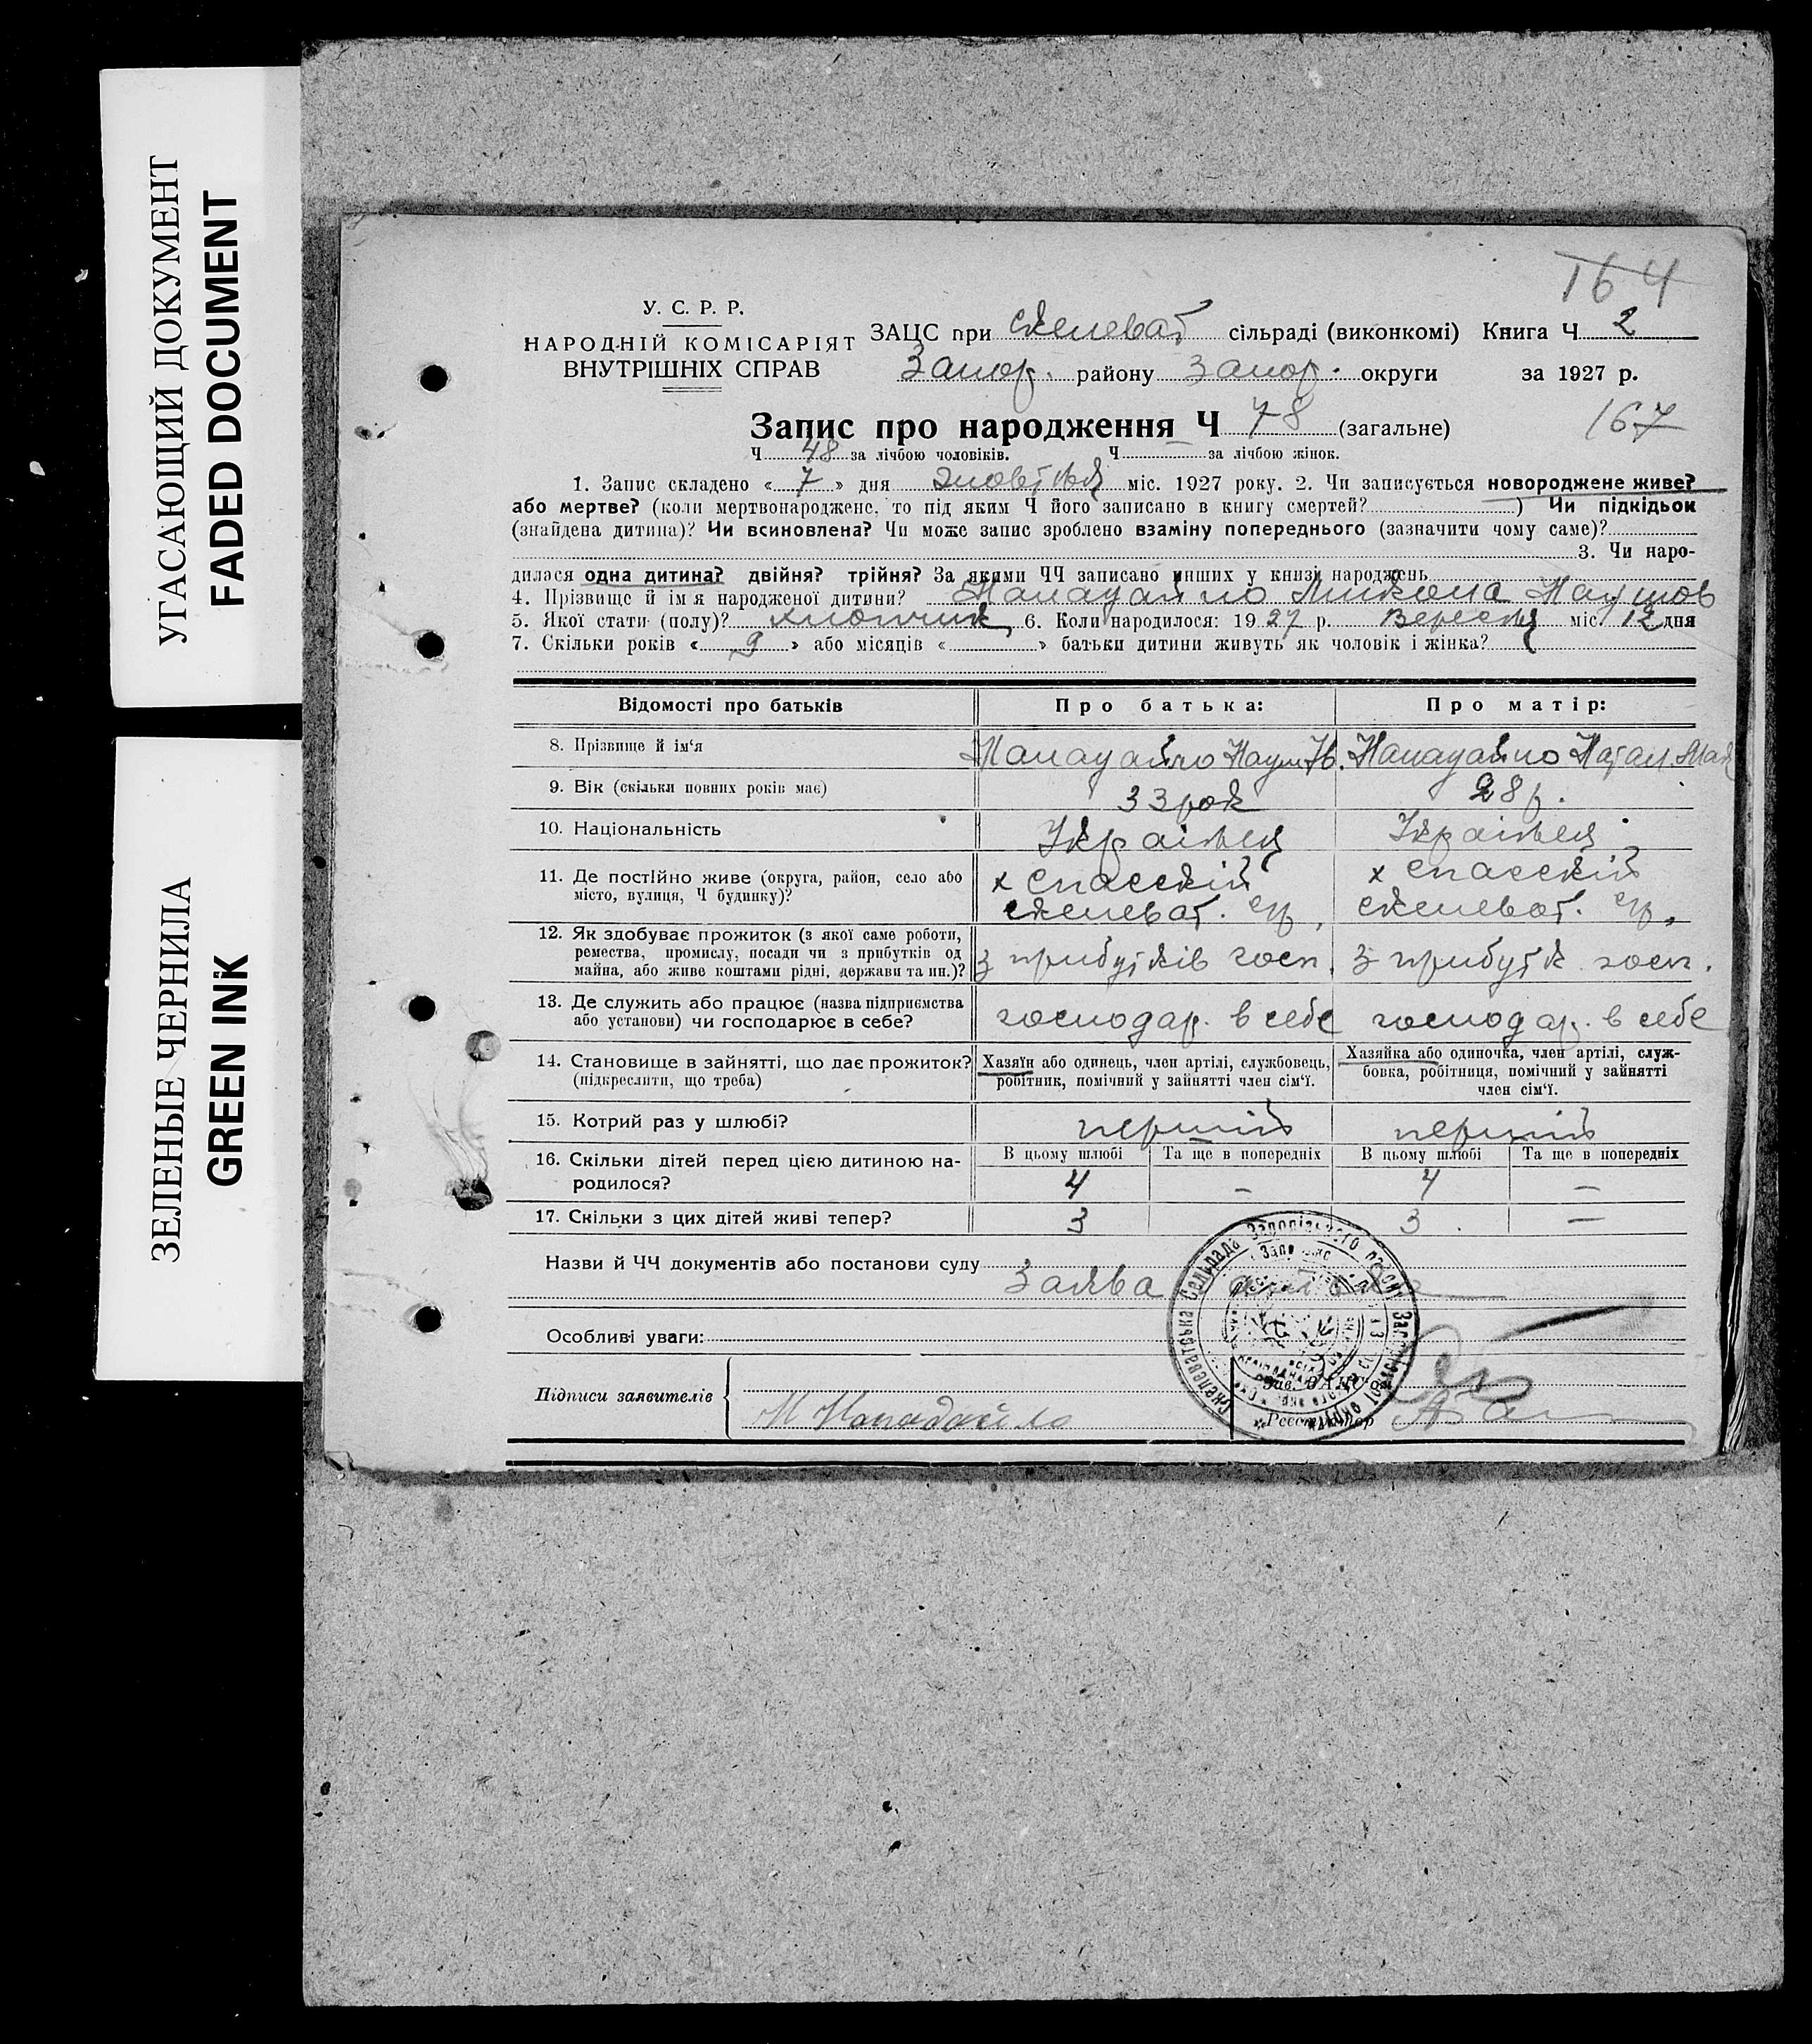 УГАСАЮЩИЙ ДОКУМЕНТ
FADED DOCUMENT
ЗЕЛЕНЫЕ ЧЕРНИЛА
GREEN INK
164
У. С. Р. Р.
НАРОДНІЙ КОМІСАРІЯТ
ВНУТРІШНІХ СПРАВ
ЗАЦС при Скелеват сільраді (виконкомі) Книга Ч 2
Запор. району Запор. округи за 1927 р.
Запис про народження Ч 78 (загальне) 167
Ч 48 за лічбою чоловіків. Ч за лічбою жінок.
1. Запис складено « 7 » дня жовтня міс. 1927 року. 2. Чи записується новороджене живе?
або мертве? (коли мертвонароджене, то під яким Ч його записано в книгу смертей? ) Чи підкідьок
(знайдена дитина)? Чи всиновлена? Чи може запис зроблено взаміну попереднього (зазначити чому саме)?
3. Чи наро-
дилася одна дитина? двійня? трійня? За якими ЧЧ записано инших у книзі народжень
4. Прізвище й ім'я народженої дитини? Нападайло Микола Наумов
5. Якої стати (полу)? хлопчик 6. Коли народилося: 1927 р. Вересня міс. 12 дня
7. Скільки років « 9 » або місяців « » батьки дитини живуть як чоловік і жінка?
Відомості про батьків Про батька: Про матір:
8. Прізвище й ім'я Нападайло Наум Ив. Нападайло Натал.
9. Вік (скільки повних років має) 33 рок 28 р.
10. Національність Українец Українец
11. Де постійно живе (округа, район, село або х Спасскій х Спасскій
місто, вулиця, Ч будинку)? Скелеват. ср. Скелеват. ср.
12. Як здобуває прожиток (з якої саме роботи,
ремества, промислу, посади чи з прибутків од з прибутків госп. з прибутк госп.
майна, або живе коштами рідні, держави та ин.)?
13. Де служить або працює (назва підприємства господар. в себе господар. в себе
або установи) чи господарює в себе?
14. Становище в зайнятті, що дає прожиток? Хазяїн або одинець, член артілі, службовець, Хазяйка або одиночка, член артілі, служ-
(підкреслити, що треба) робітник, помічний у зайнятті член сім'ї. бовка, робітниця, помічний у зайнятті
член сім'ї.
15. Котрий раз у шлюбі? перший перший
16. Скільки дітей перед цією дитиною на- В цьому шлюбі Та ще в попередніх В цьому шлюбі Та ще в попередніх
родилося? 4 — 4 —
17. Скільки з цих дітей живі тепер? 3 3 —
Назви й ЧЧ документів або постанови суду
Заява батька
Особливі уваги:
Підписи заявителів Зав. ЗАЦС'ом
Н Нападайло Реєстратор
Скелеватська Сельрада Запорізького району Запорізької округи